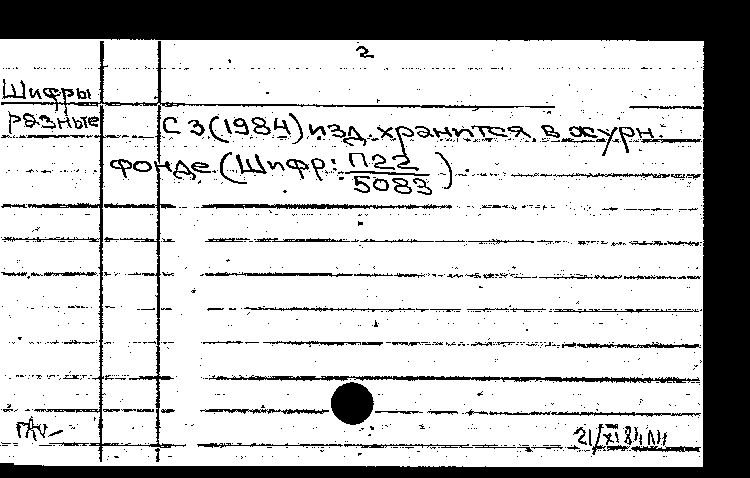 2
Шифры
разные
С 3(1984) изд. хранится в журн.
фонде (Шифр: П22
5083)
21/XI 84